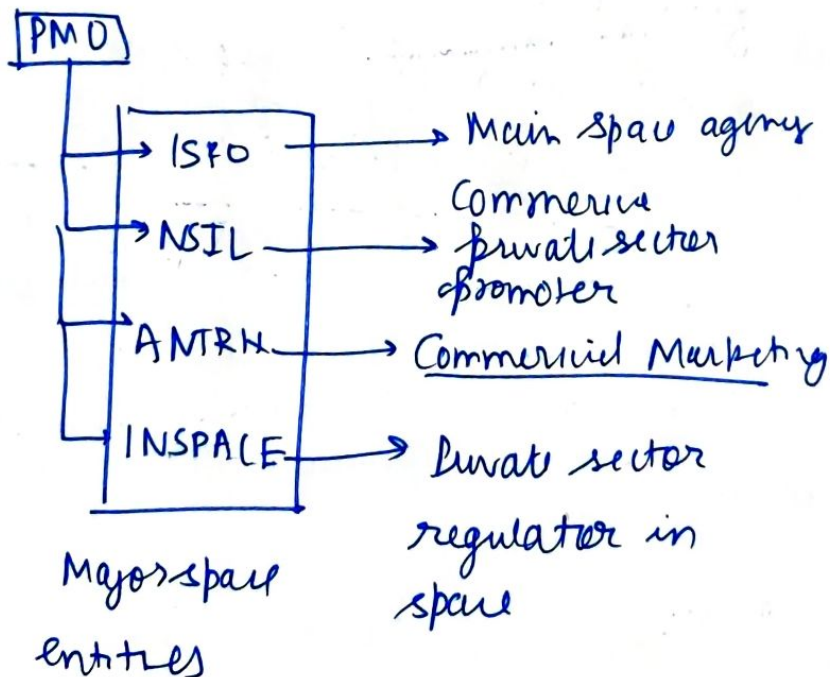 PMO
ISRO
Main space agency
NSIL
Commerice
private sector
promoter
ANTRIX
Commercial Marketing
INSPACE
Private sector
regulator in
space
Major space
entities